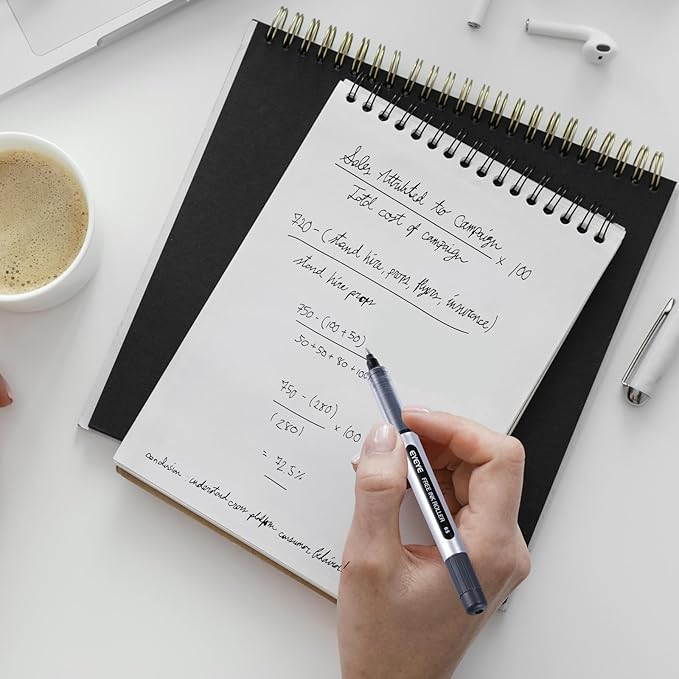 Sales Attributed to Campaign
Total cost of campaign
x 100
720 - (stand hire, props, flyers, insurance)
stand hire props
750 - (100 + 50)
50 + 50 + 80 + 100
750 - (280)
(280)
x 100
= 72.5%
conclusion: understand cross platform consumer behavior!
EYEYE FREE INK ROLLER 0.5